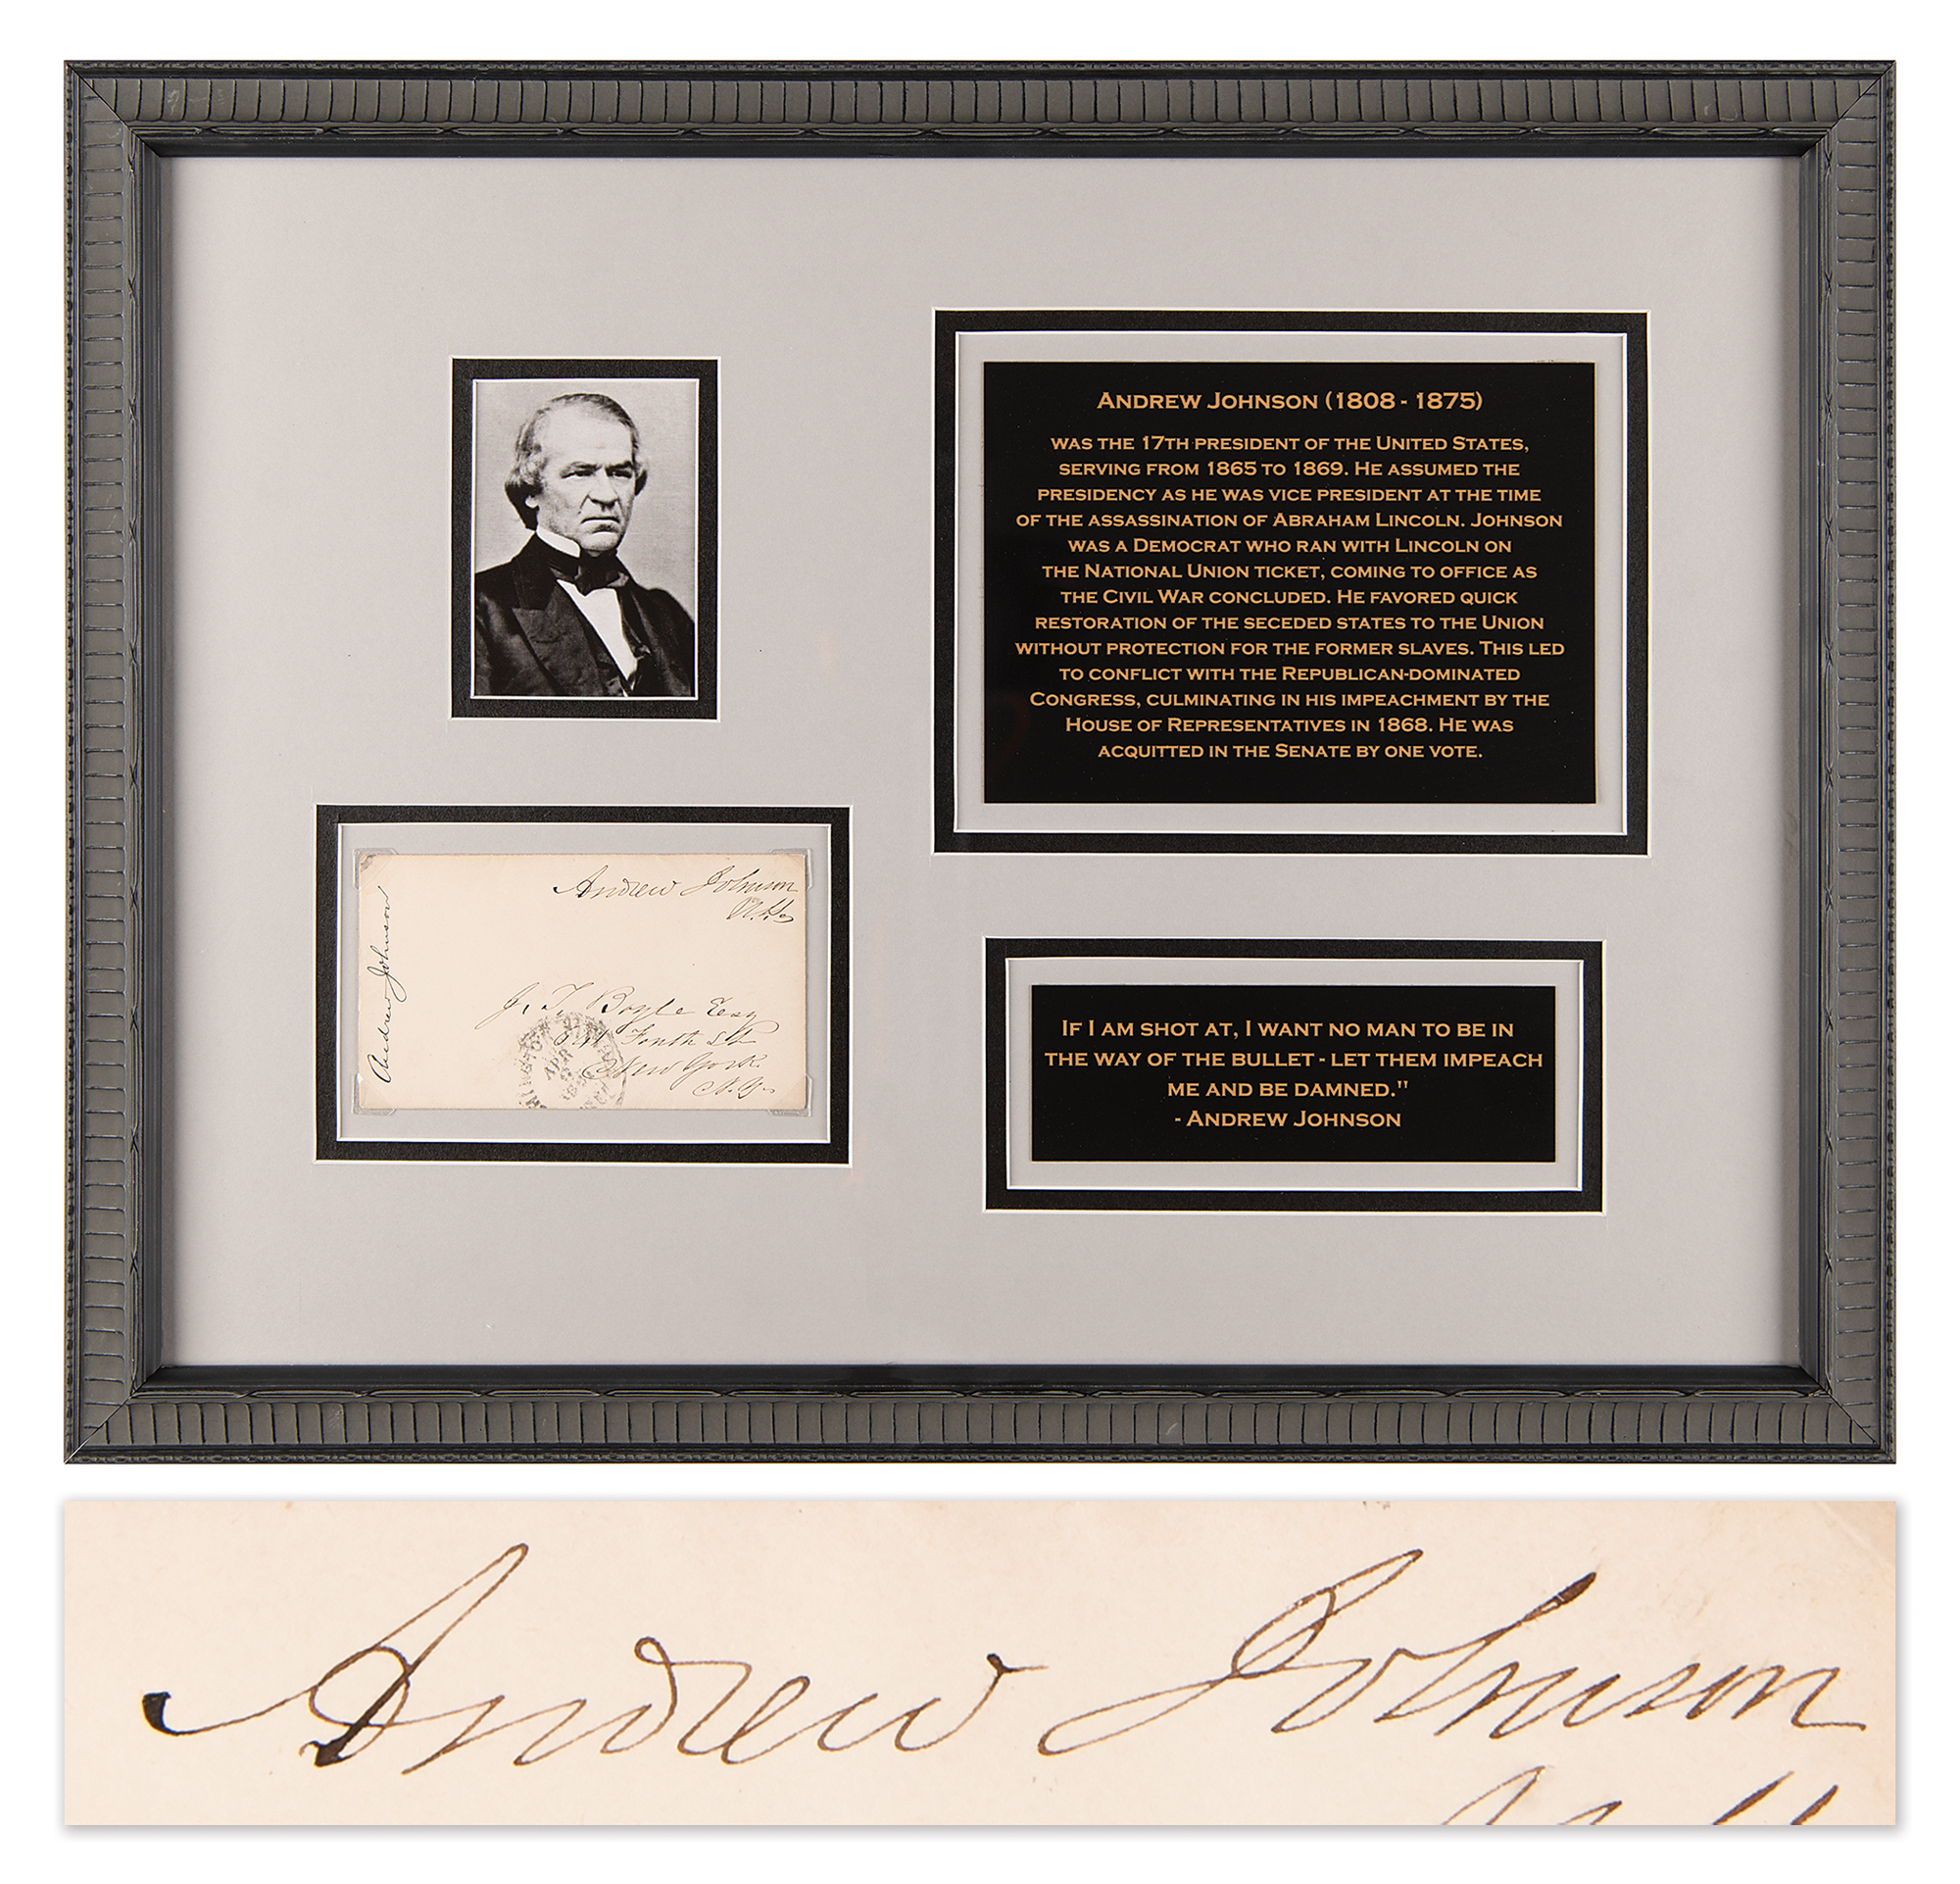 ANDREW JOHNSON (1808 - 1875)
WAS THE 17TH PRESIDENT OF THE UNITED STATES,
SERVING FROM 1865 TO 1869. HE ASSUMED THE
PRESIDENCY AS HE WAS VICE PRESIDENT AT THE TIME
OF THE ASSASSINATION OF ABRAHAM LINCOLN. JOHNSON
WAS A DEMOCRAT WHO RAN WITH LINCOLN ON
THE NATIONAL UNION TICKET, COMING TO OFFICE AS
THE CIVIL WAR CONCLUDED. HE FAVORED QUICK
RESTORATION OF THE SECEDED STATES TO THE UNION
WITHOUT PROTECTION FOR THE FORMER SLAVES. THIS LED
TO CONFLICT WITH THE REPUBLICAN-DOMINATED
CONGRESS, CULMINATING IN HIS IMPEACHMENT BY THE
HOUSE OF REPRESENTATIVES IN 1868. HE WAS
ACQUITTED IN THE SENATE BY ONE VOTE.
Andrew Johnson
Andrew Johnson
J. T. Boyle Esq
Fourth St
New York
N.Y.
APR
IF I AM SHOT AT, I WANT NO MAN TO BE IN
THE WAY OF THE BULLET - LET THEM IMPEACH
ME AND BE DAMNED."
- ANDREW JOHNSON
Andrew Johnson